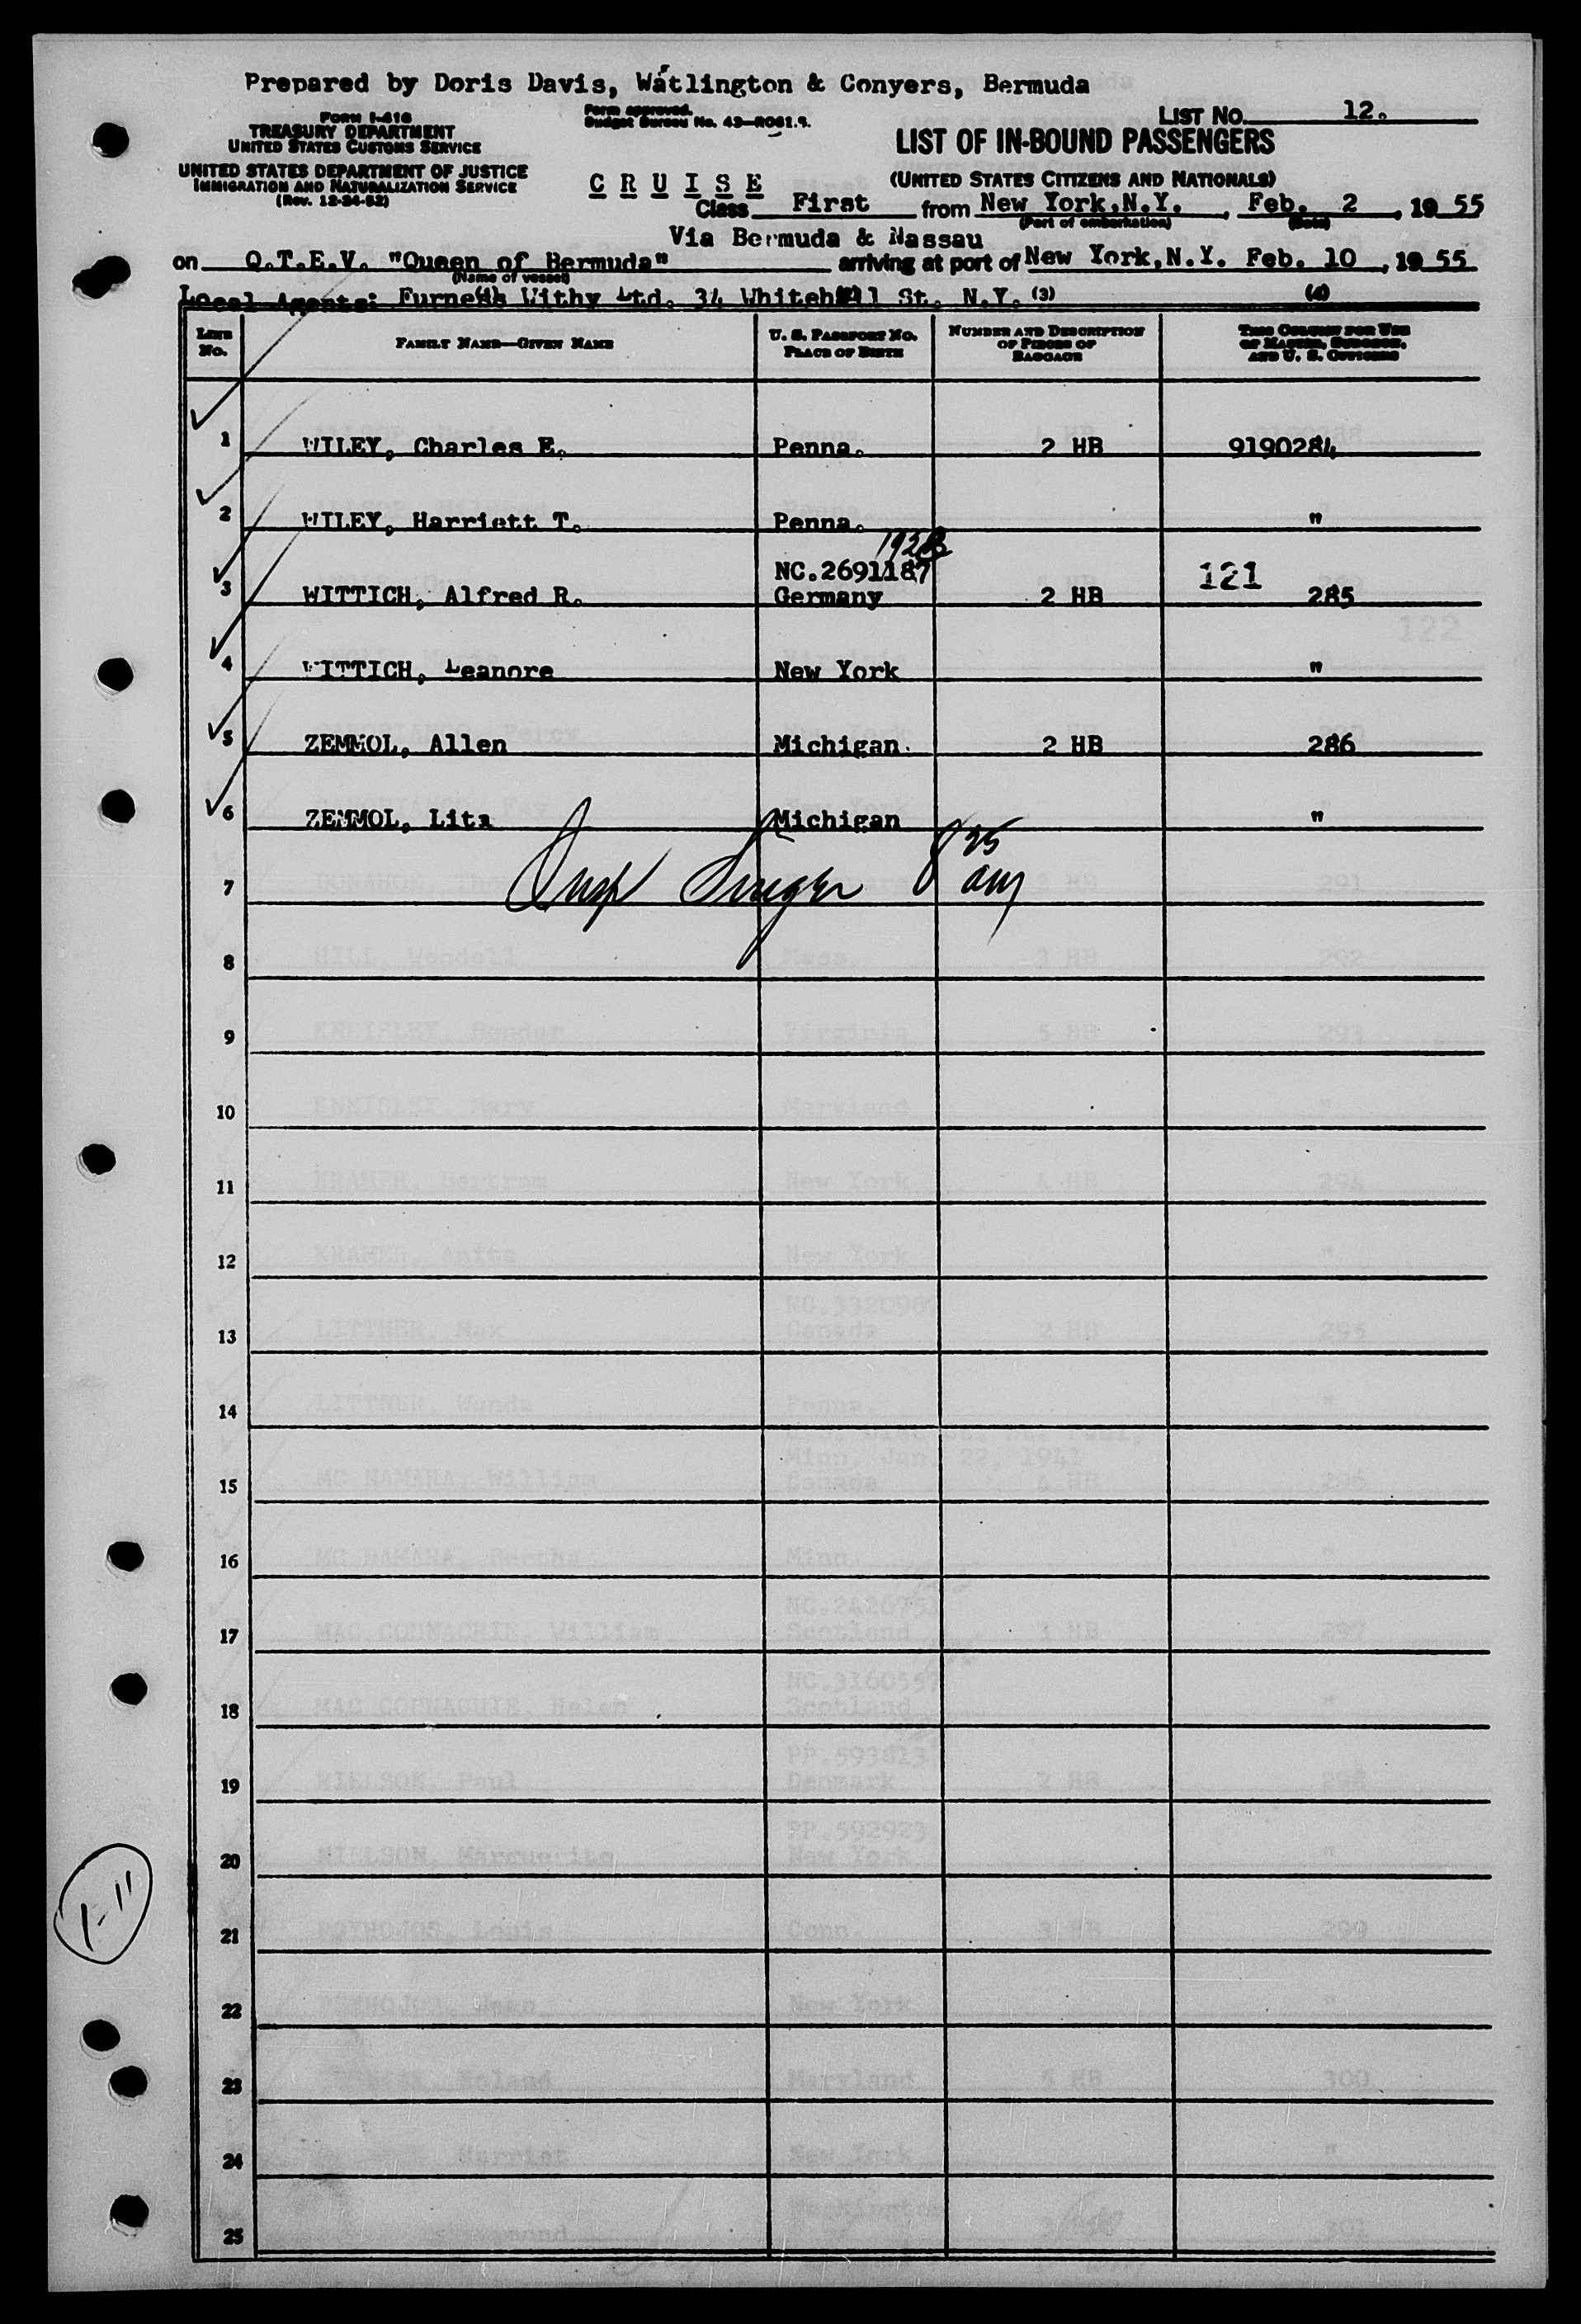 Prepared by Doris Davis, Watlington & Conyers, Bermuda
FORM I-418
TREASURY DEPARTMENT
UNITED STATES CUSTOMS SERVICE
UNITED STATES DEPARTMENT OF JUSTICE
IMMIGRATION AND NATURALIZATION SERVICE
(Rev. 12-24-52)
Form approved.
Budget Bureau No. 43—R061.9.
LIST No. 12.
LIST OF IN-BOUND PASSENGERS
(UNITED STATES CITIZENS AND NATIONALS)
C R U I S E
Class First from New York, N.Y., Feb. 2, 1955
(Port of embarkation) (Date)
Via Bermuda & Nassau
on Q.T.E.V. "Queen of Bermuda" arriving at port of New York, N.Y. Feb. 10, 1955
(Name of vessel)
Local Agents: Furness Withy Ltd. 34 Whitehall St. N.Y. (3) (4)
LINE No. FAMILY NAME—GIVEN NAME U. S. PASSPORT NO. PLACE OF BIRTH NUMBER AND DESCRIPTION OF PIECES OF BAGGAGE THIS COLUMN FOR USE OF MASTER, SURGEON, AND U. S. OFFICERS
1 WILEY, Charles E. Penna. 2 HB 9190284
2 WILEY, Harriett T. Penna. "
1928
NC.2691187 121
3 WITTICH, Alfred R. Germany 2 HB 285
4 WITTICH, Leanore New York "
5 ZEMMOL, Allen Michigan. 2 HB 286
6 ZEMMOL, Lita Michigan "
Insp Singer 8 25 am
7
8
9
10
11
12
13
14
15
16
17
18
19
20
1-11
21
22
23
24
25